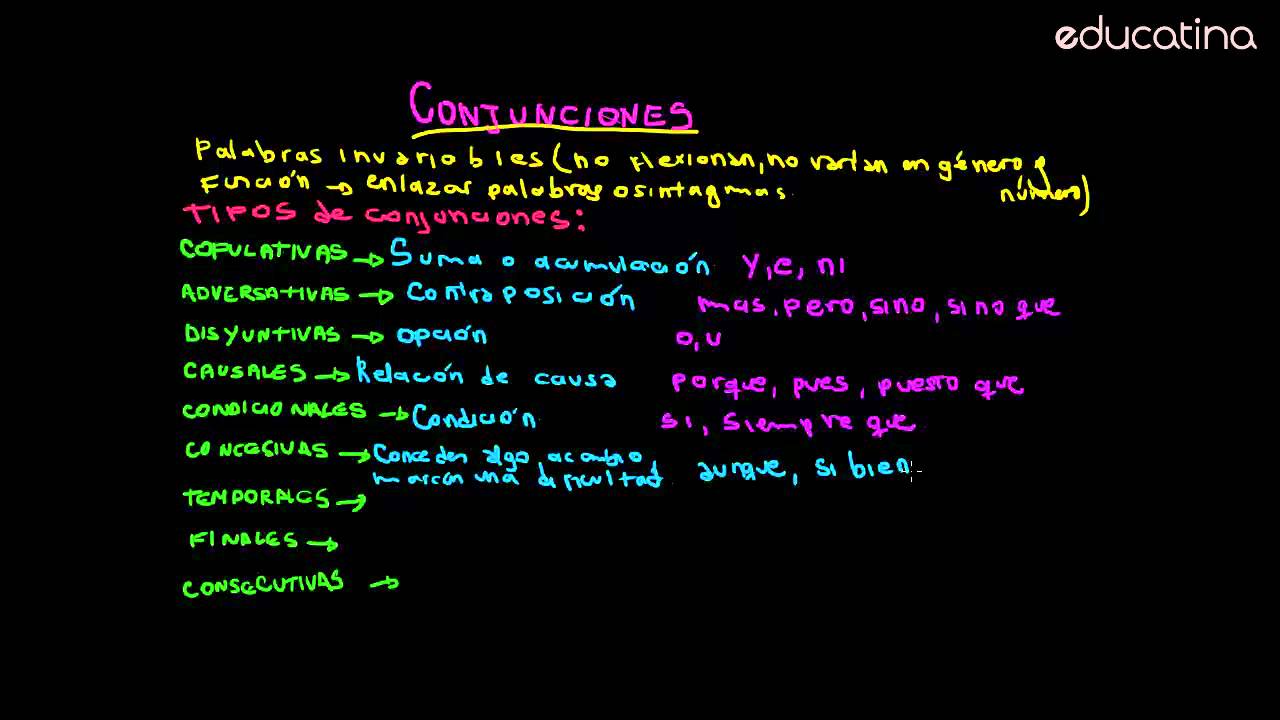 educatina
CONJUNCIONES
Palabras invariables (no flexionan, no varían en género y
número)
Función → enlazar palabras o sintagmas.
TIPOS de conjunciones:
COPULATIVAS → Suma o acumulación y, e, ni
ADVERSATIVAS → Contraposición mas, pero, sino, sino que
DISYUNTIVAS → opción o, u
CAUSALES → Relación de causa porque, pues, puesto que
CONDICIONALES → Condición si, siempre que
CONCESIVAS → Conceden algo, a cambio,
marcan una dificultad. aunque, si bien
TEMPORALES →
FINALES →
CONSECUTIVAS →